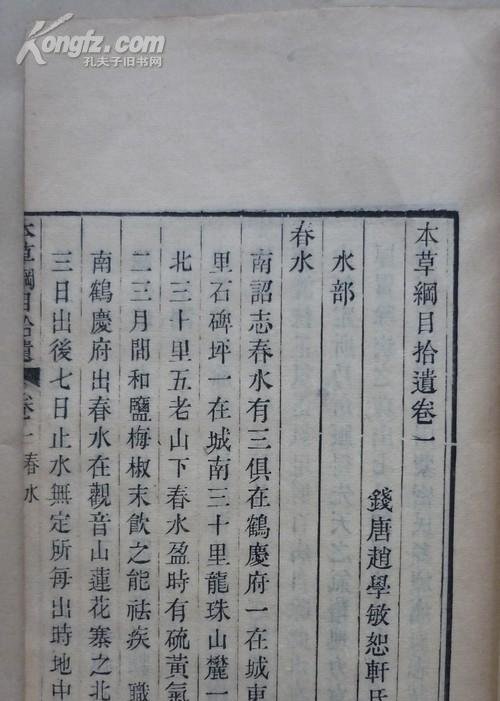 Kongfz.com
孔夫子旧书网
本草綱目拾遺卷一
錢唐趙學敏恕軒氏
水部
春水
南詔志春水有三俱在鶴慶府一在城東
里石碑坪一在城南三十里龍珠山麓一
北三十里五老山下春水盈時有硫黃氣
二三月間和鹽梅椒末飲之能祛疾 職
南鶴慶府出春水在觀音山蓮花寨之北
三日出後七日止水無定所每出時地中
本草綱目拾遺 卷一 春水